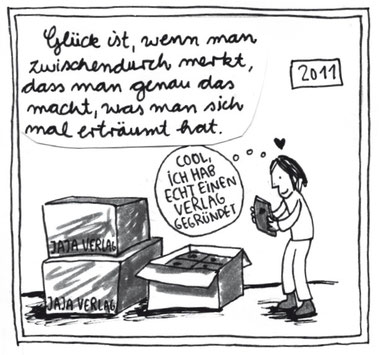 Glück ist, wenn man
zwischendurch merkt,
dass man genau das
macht, was man sich
mal erträumt hat.
2011
COOL,
ICH HAB
ECHT EINEN
VERLAG
GEGRÜNDET
JAJA VERLAG
JAJA VERLAG